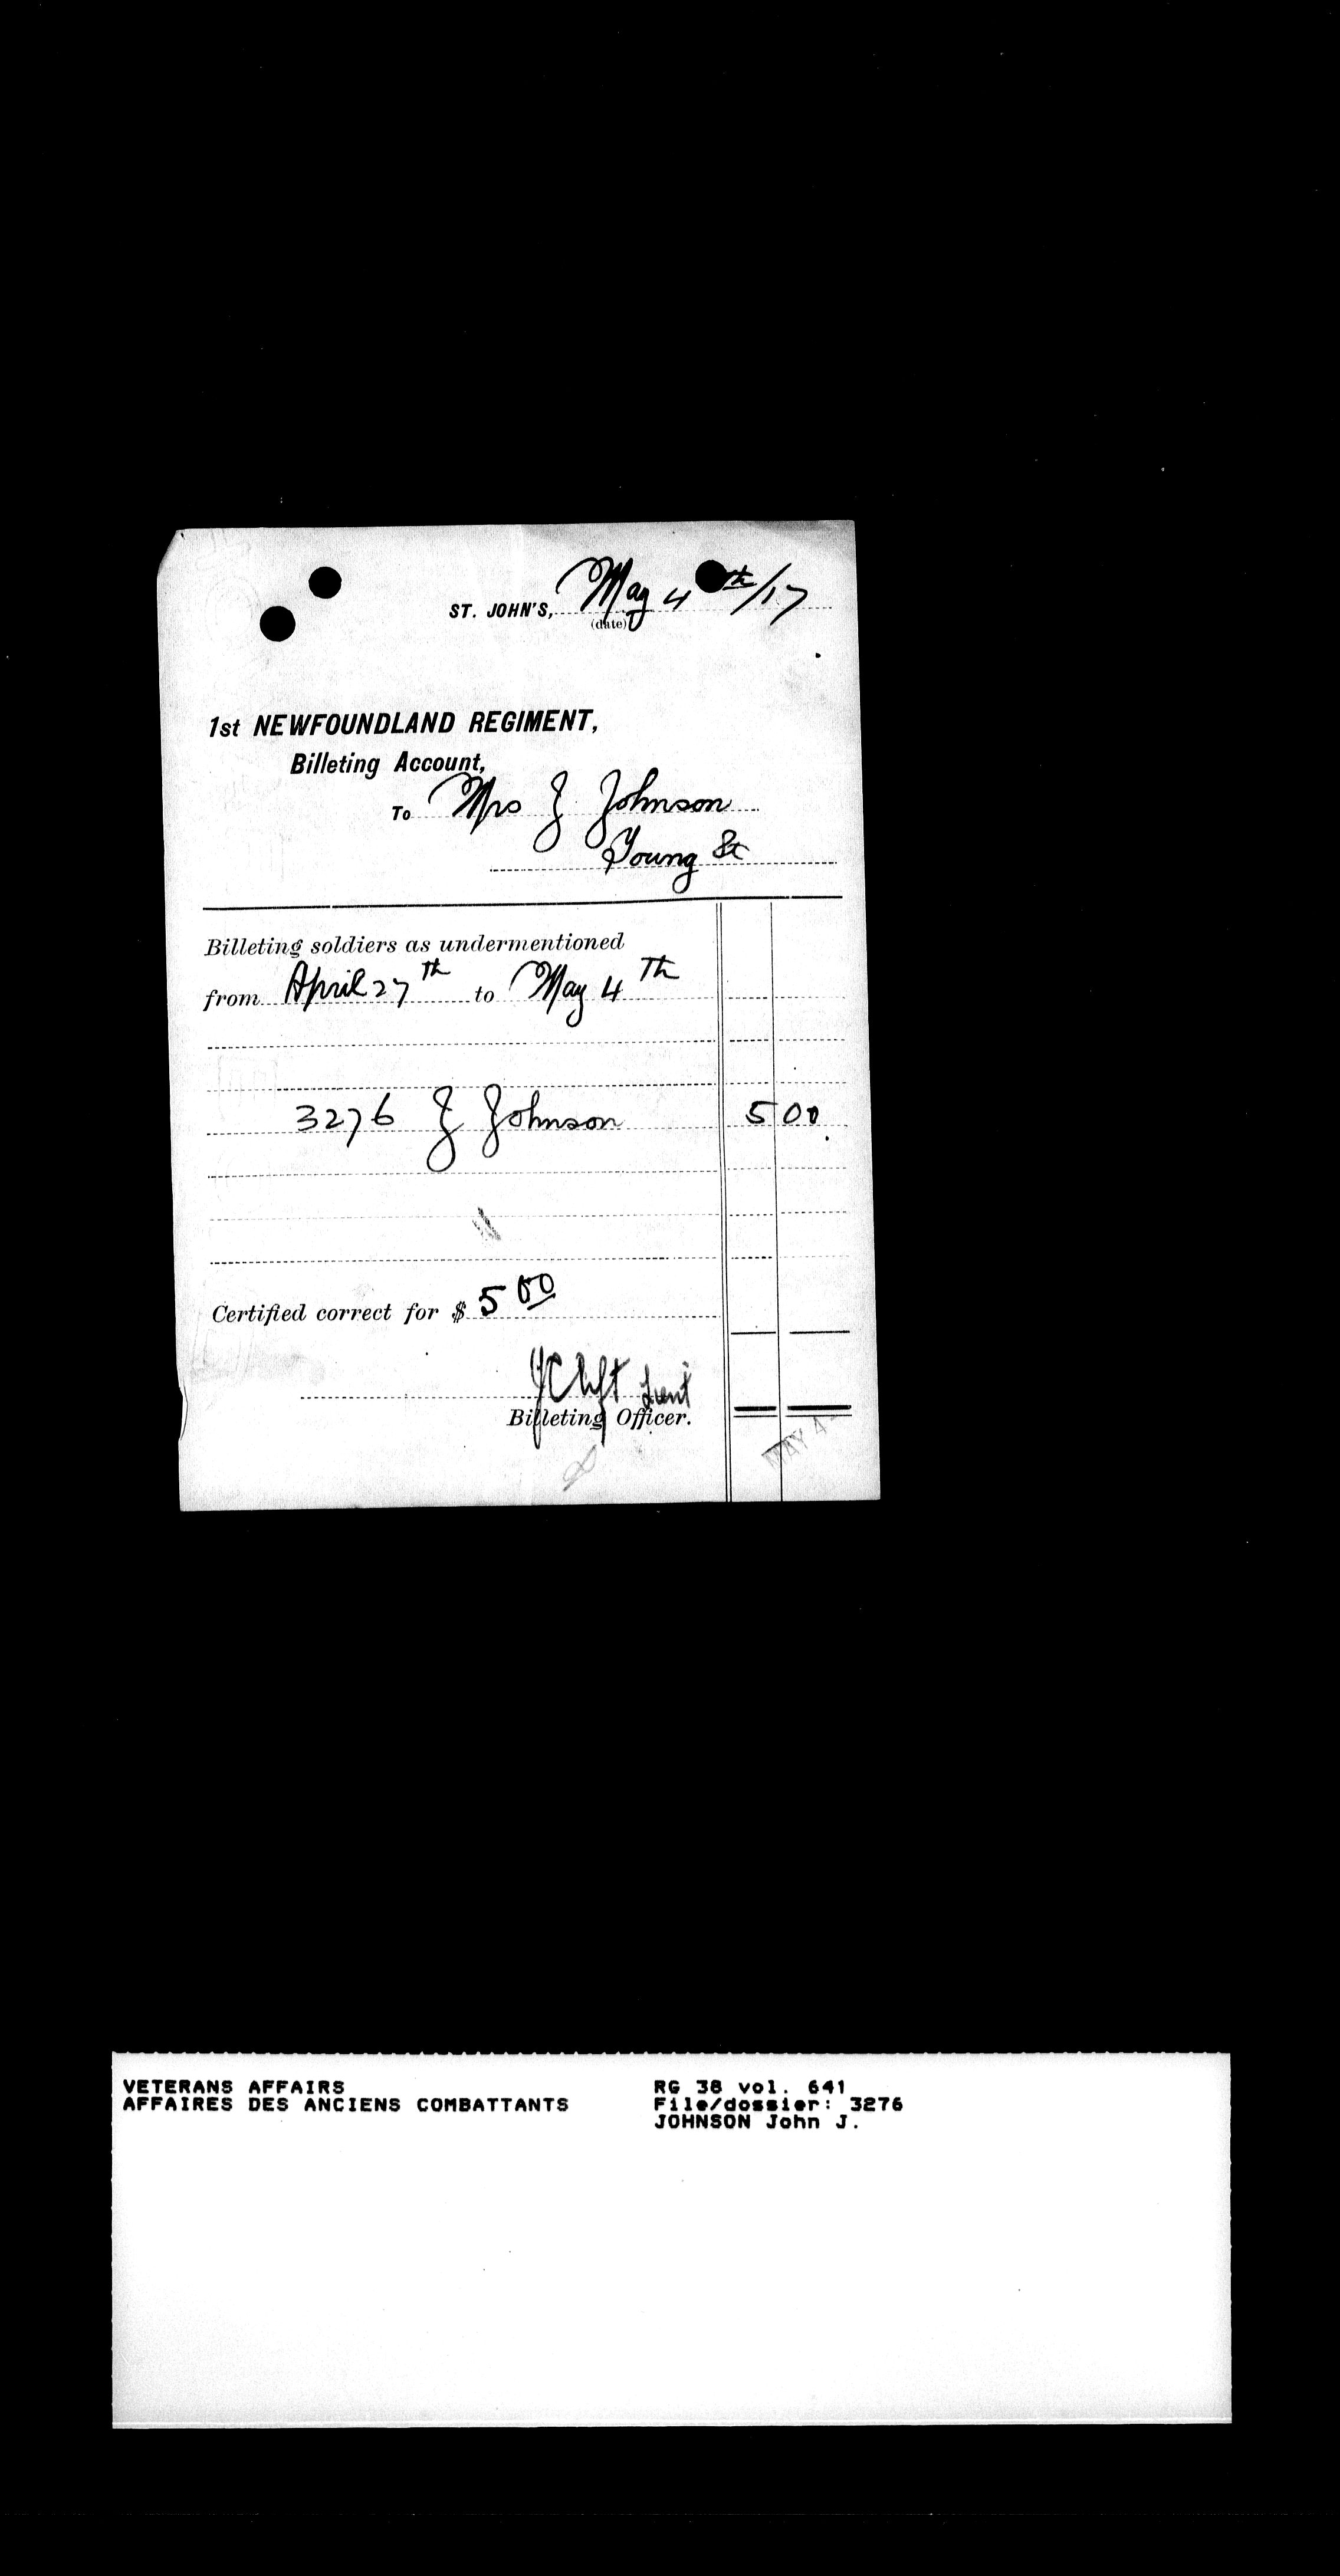 ST. JOHN'S, May 4th/17
(date)
1st NEWFOUNDLAND REGIMENT,
Billeting Account,
To Mrs J Johnson
Young St
Billeting soldiers as undermentioned
from April 27th to May 4Th
3276 J Johnson 5 00
Certified correct for $ 5 00
JClift Lieut
Billeting Officer.
MAY 4
VETERANS AFFAIRS
AFFAIRES DES ANCIENS COMBATTANTS
RG 38 vol. 641
File/dossier: 3276
JOHNSON John J.